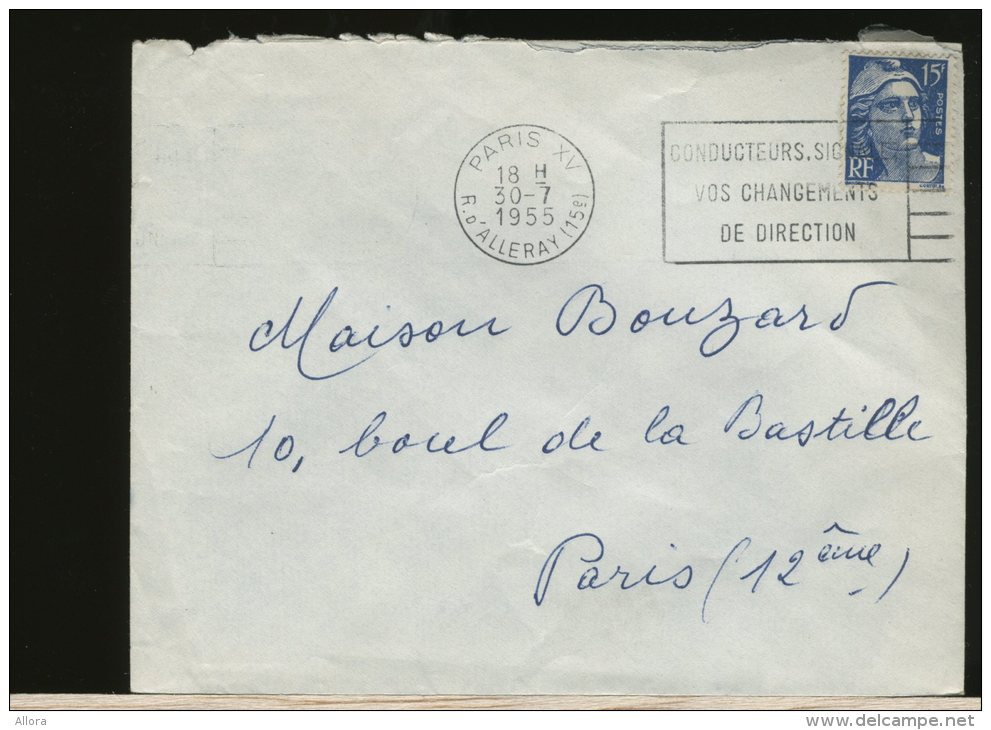 15F
POSTES
RF
PARIS XV
18 H
30-7
1955
R. D'ALLERAY (15e)
CONDUCTEURS, SIG
VOS CHANGEMENTS
DE DIRECTION
Maison Bouzard
10, boul de la Bastille
Paris (12ème)
Allora
www.delcampe.net